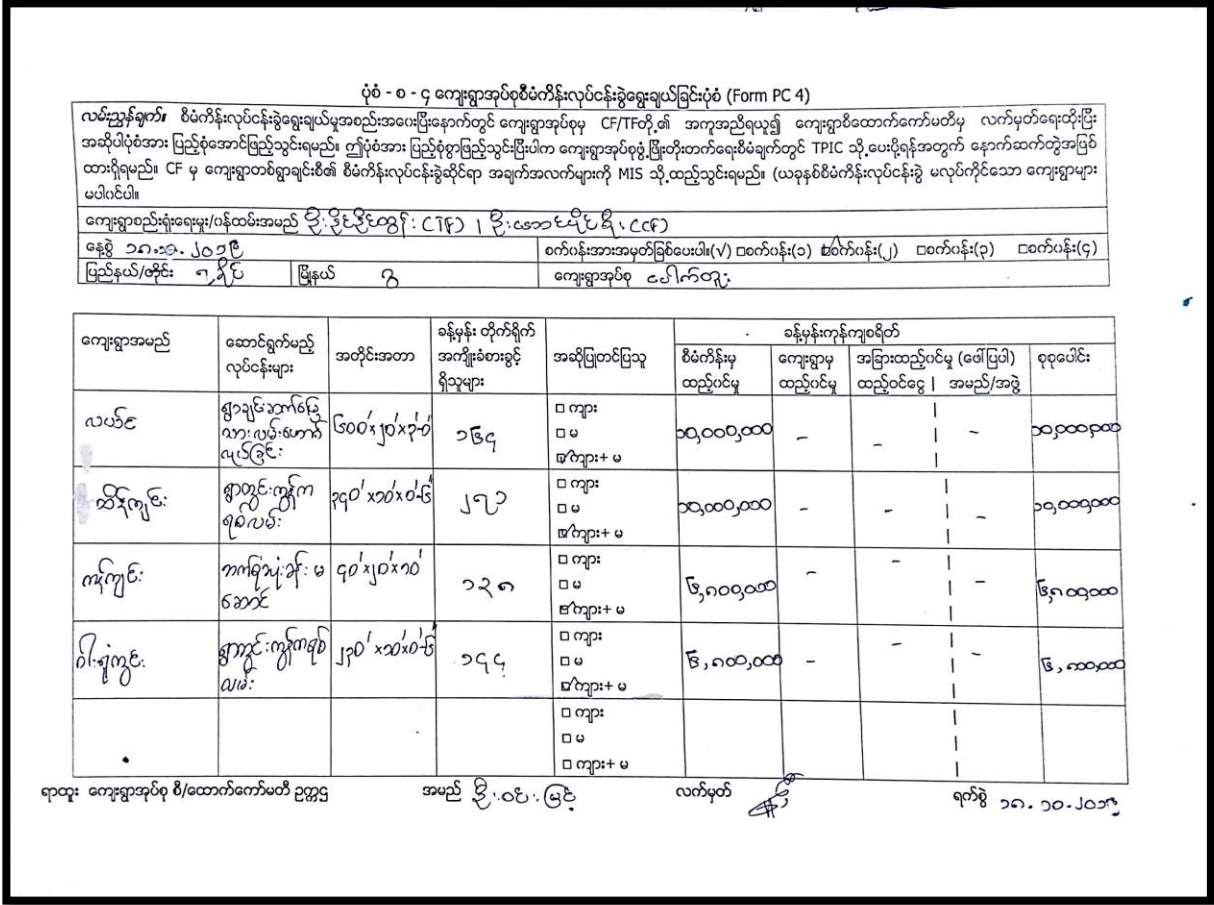 ပုံစံ - စ - ၄ ကျေးရွာအုပ်စုစီမံကိန်းလုပ်ငန်းခွဲရွေးချယ်ခြင်းပုံစံ (Form PC 4)
လမ်းညွှန်ချက်။ စီမံကိန်းလုပ်ငန်းခွဲရွေးချယ်မှုအစည်းအဝေးပြီးနောက်တွင် ကျေးရွာအုပ်စုမှ CF/TFတို့၏ အကူအညီရယူ၍ ကျေးရွာစီထောက်ကော်မတီမှ လက်မှတ်ရေးထိုးပြီး
အဆိုပါပုံစံအား ပြည့်စုံအောင်ဖြည့်သွင်းရမည်။ ဤပုံစံအား ပြည့်စုံစွာဖြည့်သွင်းပြီးပါက ကျေးရွာအုပ်စုဖွံ့ဖြိုးတိုးတက်ရေးစီမံချက်တွင် TPIC သို့ ပေးပို့ရန်အတွက် နောက်ဆက်တွဲအဖြစ်
ထားရှိရမည်။ CF မှ ကျေးရွာတစ်ရွာချင်းစီ၏ စီမံကိန်းလုပ်ငန်းခွဲဆိုင်ရာ အချက်အလက်များကို MIS သို့ ထည့်သွင်းရမည်။ (ယခုနှစ်စီမံကိန်းလုပ်ငန်းခွဲ မလုပ်ကိုင်သော ကျေးရွာများ
မပါဝင်ပါ။
ကျေးရွာစည်းရုံးရေးမှူး/ဝန်ထမ်းအမည် (TF) / (CF)
နေ့စွဲ ၁၈.၁၀.၂၀၁၉ စက်ဝန်းအားအမှတ်ခြစ်ပေးပါ။(√) □စက်ဝန်း(၁) ☑စက်ဝန်း(၂) □စက်ဝန်း(၃) □စက်ဝန်း(၄)
ပြည်နယ်/တိုင်း ရခိုင် မြို့နယ် ဂွ ကျေးရွာအုပ်စု ပေါက်တူး
ကျေးရွာအမည် ဆောင်ရွက်မည့် လုပ်ငန်းများ အတိုင်းအတာ ခန့်မှန်း တိုက်ရိုက် အကျိုးခံစားခွင့် ရှိသူများ အဆိုပြုတင်ပြသူ ခန့်မှန်းကုန်ကျစရိတ်
စီမံကိန်းမှ ထည့်ဝင်မှု ကျေးရွာမှ ထည့်ဝင်မှု အခြားထည့်ဝင်မှု (ဖော်ပြပါ) ထည့်ဝင်ငွေ | အမည်/အဖွဲ့ စုစုပေါင်း
ရွာချင်းဆက်မြေ
သားလမ်းဖောက်
လုပ်ခြင်း
၆၀၀'x၂၀'x၃'-၀' ၁၆၄
□ ကျား
□ မ
☑ကျား+ မ
၁၀,၀၀၀,၀၀၀ - - - ၁၀,၀၀၀,၀၀၀
ထိန်ကျင်း ရွာတွင်းကွန်က
ရစ်လမ်း
၃၄၀'x၁၀'x၀'-၆" ၂၇၁
□ ကျား
□ မ
☑ကျား+ မ
၁၀,၀၀၀,၀၀၀ - - - ၁၀,၀၀၀,၀၀၀
ဘက်စုံသုံးခန်းမ
ဆောင်
၄၀'x၂၀'x၁၀' ၁၃၈
□ ကျား
□ မ
☑ကျား+ မ
၆,၈၀၀,၀၀၀ - - - ၆,၈၀၀,၀၀၀
ဝါးရုံကွင်း ရွာတွင်းကွန်ကရစ်
လမ်း
၂၃၀'x၁၀'x၀'-၆" ၁၄၄
□ ကျား
□ မ
☑ကျား+ မ
၆,၈၀၀,၀၀၀ - - - ၆,၈၀၀,၀၀၀
□ ကျား
□ မ
□ ကျား+ မ
ရာထူး ကျေးရွာအုပ်စု စီ/ထောက်ကော်မတီ ဥက္ကဌ အမည် ဦးဝင်းမြင့် လက်မှတ် ရက်စွဲ ၁၈.၁၀.၂၀၁၉